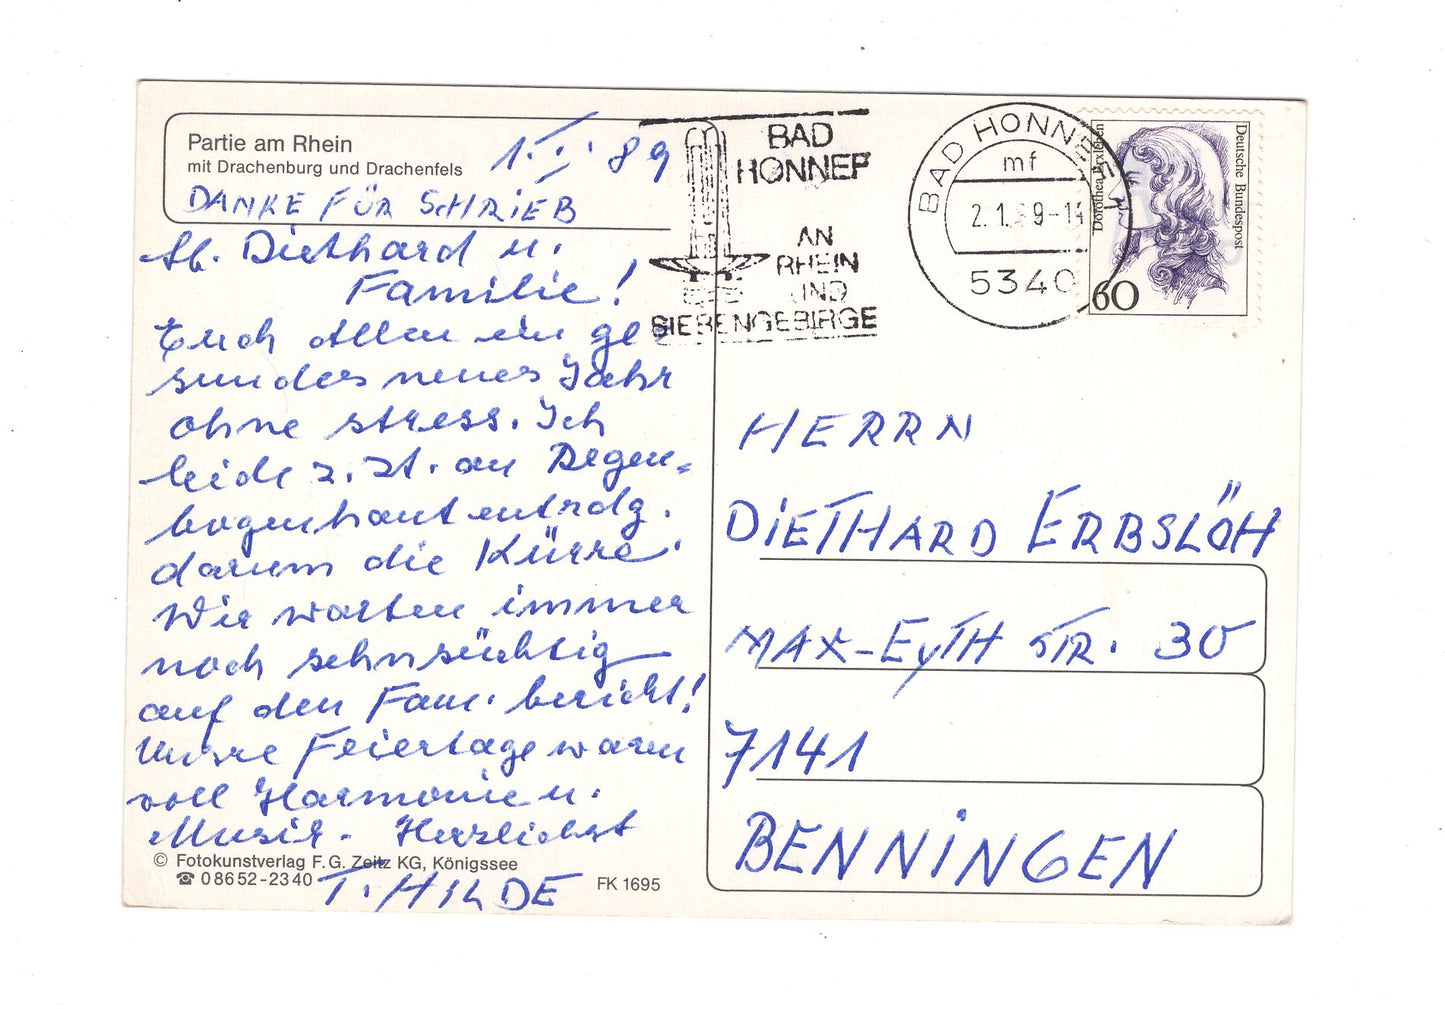 Partie am Rhein
mit Drachenburg und Drachenfels
1. I. 89
DANKE FÜR SCHRIEB
Lb. Diethard u.
Familie!
Euch Allen ein ge
sundes neues Jahr
ohne Stress. Ich
leide z. Zt. an Regen-
bogenhautentzdg.
darum die Kürze.
Wir warten immer
noch sehnsüchtig
auf den Fam. bericht!
Unsre Feiertage waren
voll Harmonie u.
Musik. Herzlichst
T. HILDE
© Fotokunstverlag F. G. Zeitz KG, Königssee
☎ 0 86 52 - 23 40
FK 1695
BAD
HONNEF
AN
RHEIN
UND
SIEBENGEBIRGE
BAD HONNEF 1
mf
2.1.89-14
5340
Deutsche Bundespost
Dorothea Erxleben
60
HERRN
DIETHARD ERBSLÖH
MAX-EyTH STR. 30
7141
BENNINGEN